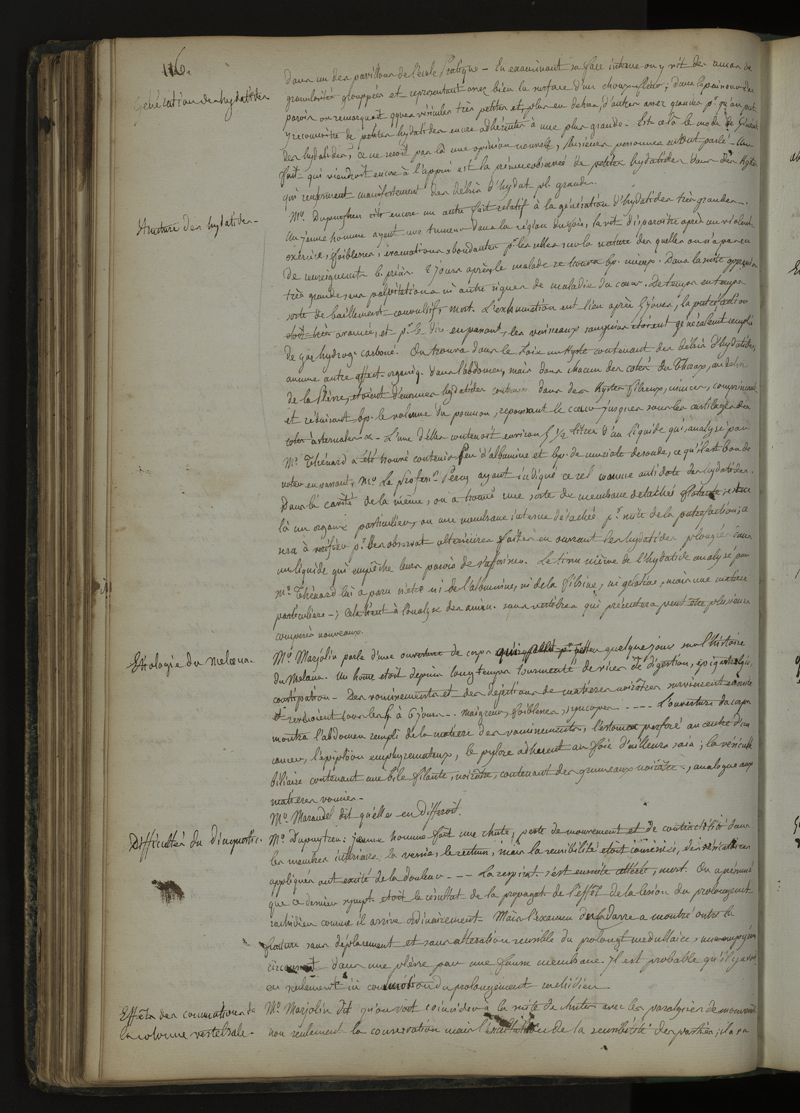 116.
Génération des hydatides
dans un des pavillons de l'école Pratique – En examinant sa face interne on y vit des amas de
granulosités grouppées et représentant assez bien la surface d'un choux-fleur; dans l'épaisseur des
parois on remarquoit q.ques vésicules très petites et plus en dehors, d'autres assez grandes p.r qu'on pût
y reconnoître de petites hydatides encore adhérentes à une plus grande. Est-ce là le mode de générat.
des hydatides; ce ne seroit pas là une opinion nouvelle, plusieurs personnes en ont parlé – Un
fait qui viendroit encore à l'appui est la présence de petites hydatides dans des kystes
qui renferment manifestement des débris d'hydat. pl. grandes.
Structure des hydatides –
Mr. Dupuytren cite encore un autre fait relatif à la génération d'hydatides très grandes –
Un jeune homme ayant une tumeur dans la région du foie, la vit disparoître après un violent
exercice, foiblesses, évacuations abondantes p. les selles sur la nature des quelles on n'a pas eu
de renseignements b. précis. 2 jours après le malade se trouve bp. mieux. Dans la suite oppression
très grande, sans palpitations ni autres signes de maladie du cœur. De temps en temps
sorte de baillement convulsif, mort. L'exhumation eut lieu après 5 jours, la putréfaction
étoit très avancée, et p. le dire en passant, les vaisseaux sanguins étoient généralement remplis
de gaz hydrog. carboné. On trouva dans le foie un kyste contenant des débris d'hydatides,
aucune autre affect. organiq. dans l'abdomen, mais dans chacun des cotés du Thorax, au delà
de la plèvre, étoient d'énormes hydatides contenues dans des kystes fibreux, minces, comprimant
et réduisant bp. le volume du poumon, repoussant le cœur jusques sous les cartilages des
cotes asternales – L'une d'elles contenoit environ 5 ½ litres d'un liquide qui, analysé par
Mr. Thénard a été trouvé contenir peu d'albumine et bp. de muriate de soude, ce qu'il est bon de
noter en passant, Mr. le Profess.r Percy ayant indiqué ce sel comme antidote des hydatides.
Dans la cavité de la même, on a trouvé une sorte de membrane détachée flottante, est-ce
là un organe particulier, ou une membrane interne détachée p. suite de la putréfaction; ce
sera à vérifier p. des observat. ultérieures faites en ouvrant les hydatides plongées dans
un liquide qui empêche leurs parois de s'affaisser. Le tissu même de l'hydatide analysé par
Mr. Thénard lui a paru n'être ni de l'albumine, ni de la fibrine, ni gélatine, mais une matière
particulière –; cela tient à l'analyse des anim. sans vertèbres qui présentera peut être plusieurs
composés nouveaux.
Ethologie du melœna.
Mr. Marjolin parle d'une ouverture de corps qui peut p. jetter quelque jour sur l'histoire
du Melœna. Un home étoit depuis longtemps tourmenté de vices de digestion, épigastralgie,
constipation – Des vomissements et des dejections de matières noirâtres survinrent ensuite
et revenoient tous les 5 à 6 jours – . maigreur, foiblesses, syncopes – – – – L'ouverture du corps
montra l'abdomen rempli de la matière des vomissements, l'estomac perforé au centre d'un
cancer, l'épiploon emphysemateux, le pylore adhérent au foie d'ailleurs sain; la vésicule
biliaire contenant une bile filante, noirâtre, contenant des grumeaux noirâtres –, analogue aux
matieres vomies –
Mr. Marandel dit qu'elles en different.
Difficultés du Diagnostic.
Mr. Dupuytren: jeune homme fait une chute, perte de mouvement et de contractilité dans
les membres inférieurs, la vessie, le rectum, mais la sensibilité étoit conservée, des vésicatoires
appliqués ont excité de la douleur – – – – La respirat. s'est ensuite altérée, mort. On a présumé
que ce dernier sympt. étoit le résultat de la propagat. de l'effet de la lésion du prolongement
rachidien comme il arrive ordinairement – Mais l'examen du cadavre a montré outre la
fracture sans déplacement et sans altération sensible du prolong.t médullaire, un empyème
circonscrit dans une plèvre par une fausse membrane. Il est probable qu'il y a
eu seulement ici commotion du prolongement rachidien
Effets des commotions de
la colonne vertébrale –
Mr. Marjolin dit qu'on voit coincider à la suite de chutes avec les paralysies de mouvement
non seulement la conservation mais l'exaltation de la sensibilité des parties; il a vu